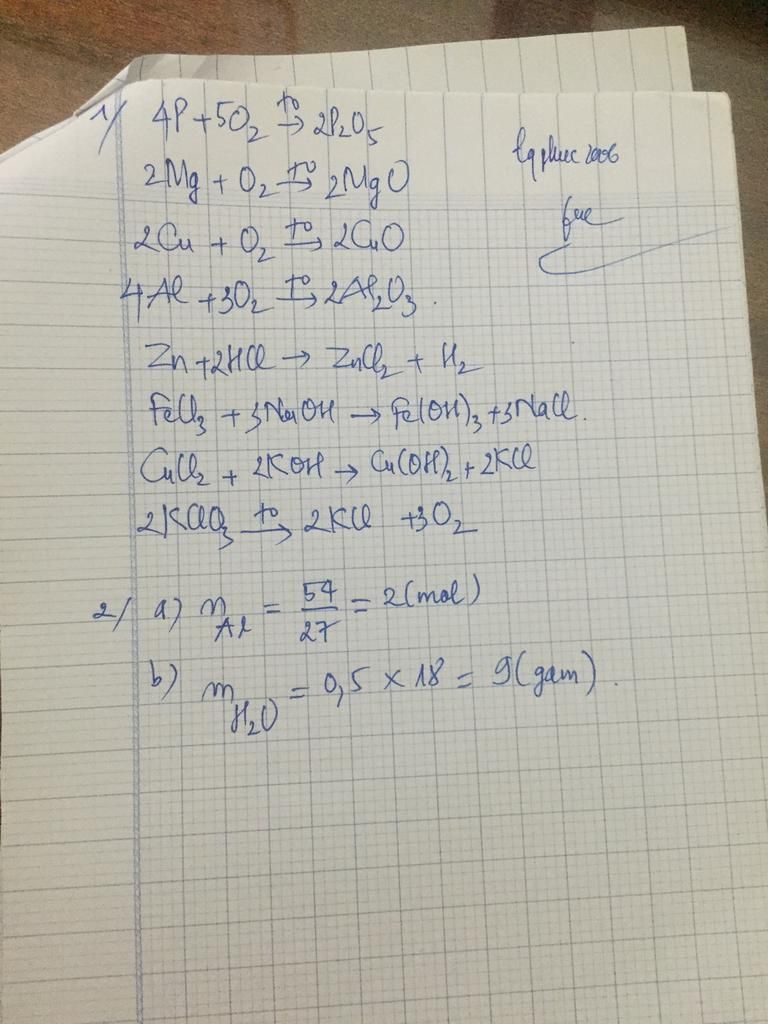 1/ 4P + 5O₂ →(t°) 2P₂O₅
2Mg + O₂ →(t°) 2MgO
2Cu + O₂ →(t°) 2CuO
4Al + 3O₂ →(t°) 2Al₂O₃.
Zn + 2HCl → ZnCl₂ + H₂
FeCl₃ + 3NaOH → Fe(OH)₃ + 3NaCl.
CuCl₂ + 2KOH → Cu(OH)₂ + 2KCl
2KClO₃ →(t°) 2KCl + 3O₂
2/ a) n_Al = 54/27 = 2(mol)
b) m_H₂O = 0,5 × 18 = 9(gam).
2006